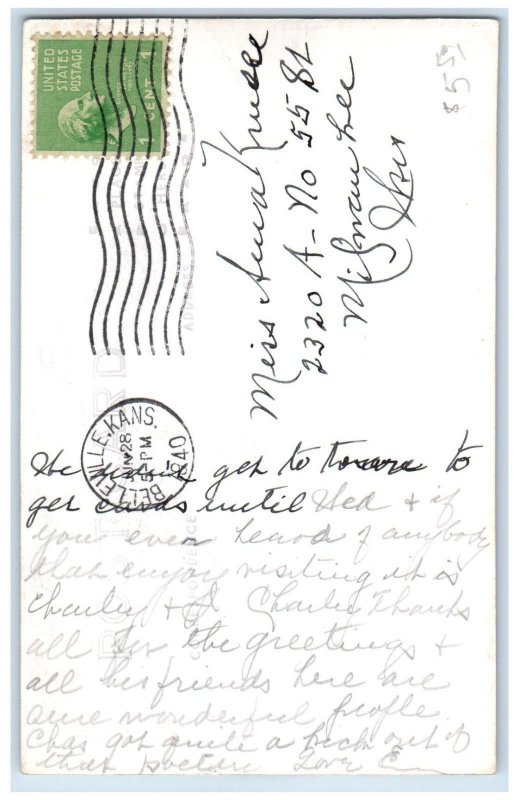 UNITED
STATES
POSTAGE
1 CENT 1
$5 50
Miss Anna Krusee
2320 A - No 55 St
Milwaukee
Wis
BELLEVILLE, KANS.
JUN 28
5 PM
1940
We didn't get to to
get cards until Wed + if
you ever heard of anybody
that enjoy visiting it is
Charley + I. Charley Thanks
all for the greetings +
all his friends here are
sure wonderful people
Chas got quite a kick out of
that poetry Love E